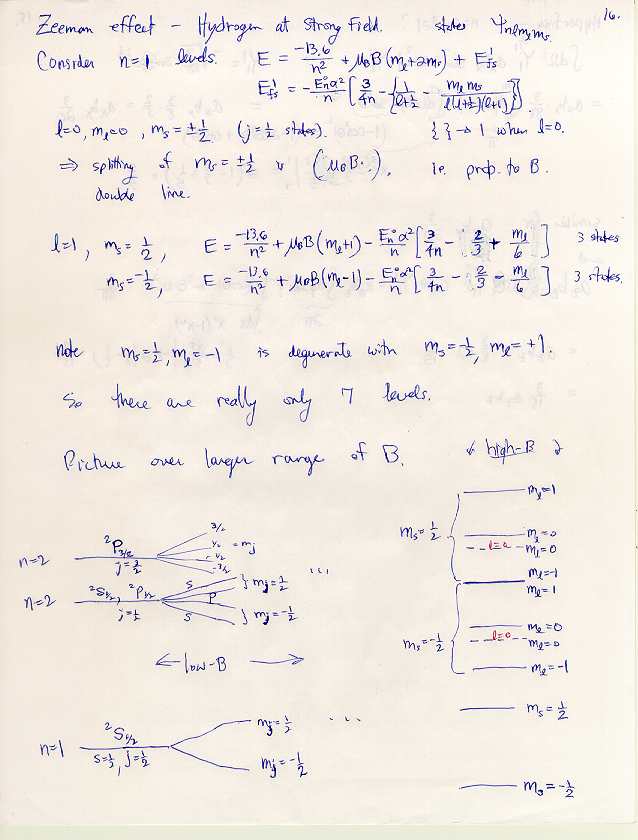 16.
Zeeman effect - Hydrogen at Strong Field. states ψ_{n l m_l m_s}
Consider n=1 levels. E = -13.6/n² + μ_B B(m_l+2m_s) + E'_fs
E'_fs = -E_n° α²/n [3/4n - {1/(l+½) - m_l m_s/(l(l+½)(l+1))}].
l=0, m_l=0, m_s = ±½ (j=½ states). { } → 1 when l=0.
⇒ splitting of m_s = ±½ is (μ_B B·), ie. prop. to B.
double line.
l=1, m_s = ½, E = -13.6/n² + μ_B B(m_l+1) - E_n° α²/n [3/4n - 2/3 + m_l/6] 3 states
m_s = -½, E = -13.6/n² + μ_B B(m_l-1) - E_n° α²/n [3/4n - 2/3 - m_l/6] 3 states.
note m_s=½, m_l=-1 is degenerate with m_s=-½, m_l=+1.
So there are really only 7 levels.
Picture over larger range of B. ↙ high-B ↘
m_l=1
n=2 ²P_{3/2} j=3/2 3/2 ½ -½ -3/2 = m_j ...
m_s=½ m_l=0
l=0 m_l=0
m_l=-1
m_l=1
n=2 ²S_{½}, ²P_{½} j=½ S P S } m_j=½ } m_j=-½
m_s=-½ m_l=0
l=0 m_l=0
m_l=-1
← low-B →
m_s=½
n=1 ²S_{½} s=½, j=½ m_j=½ ...
m_j=-½
m_s=-½